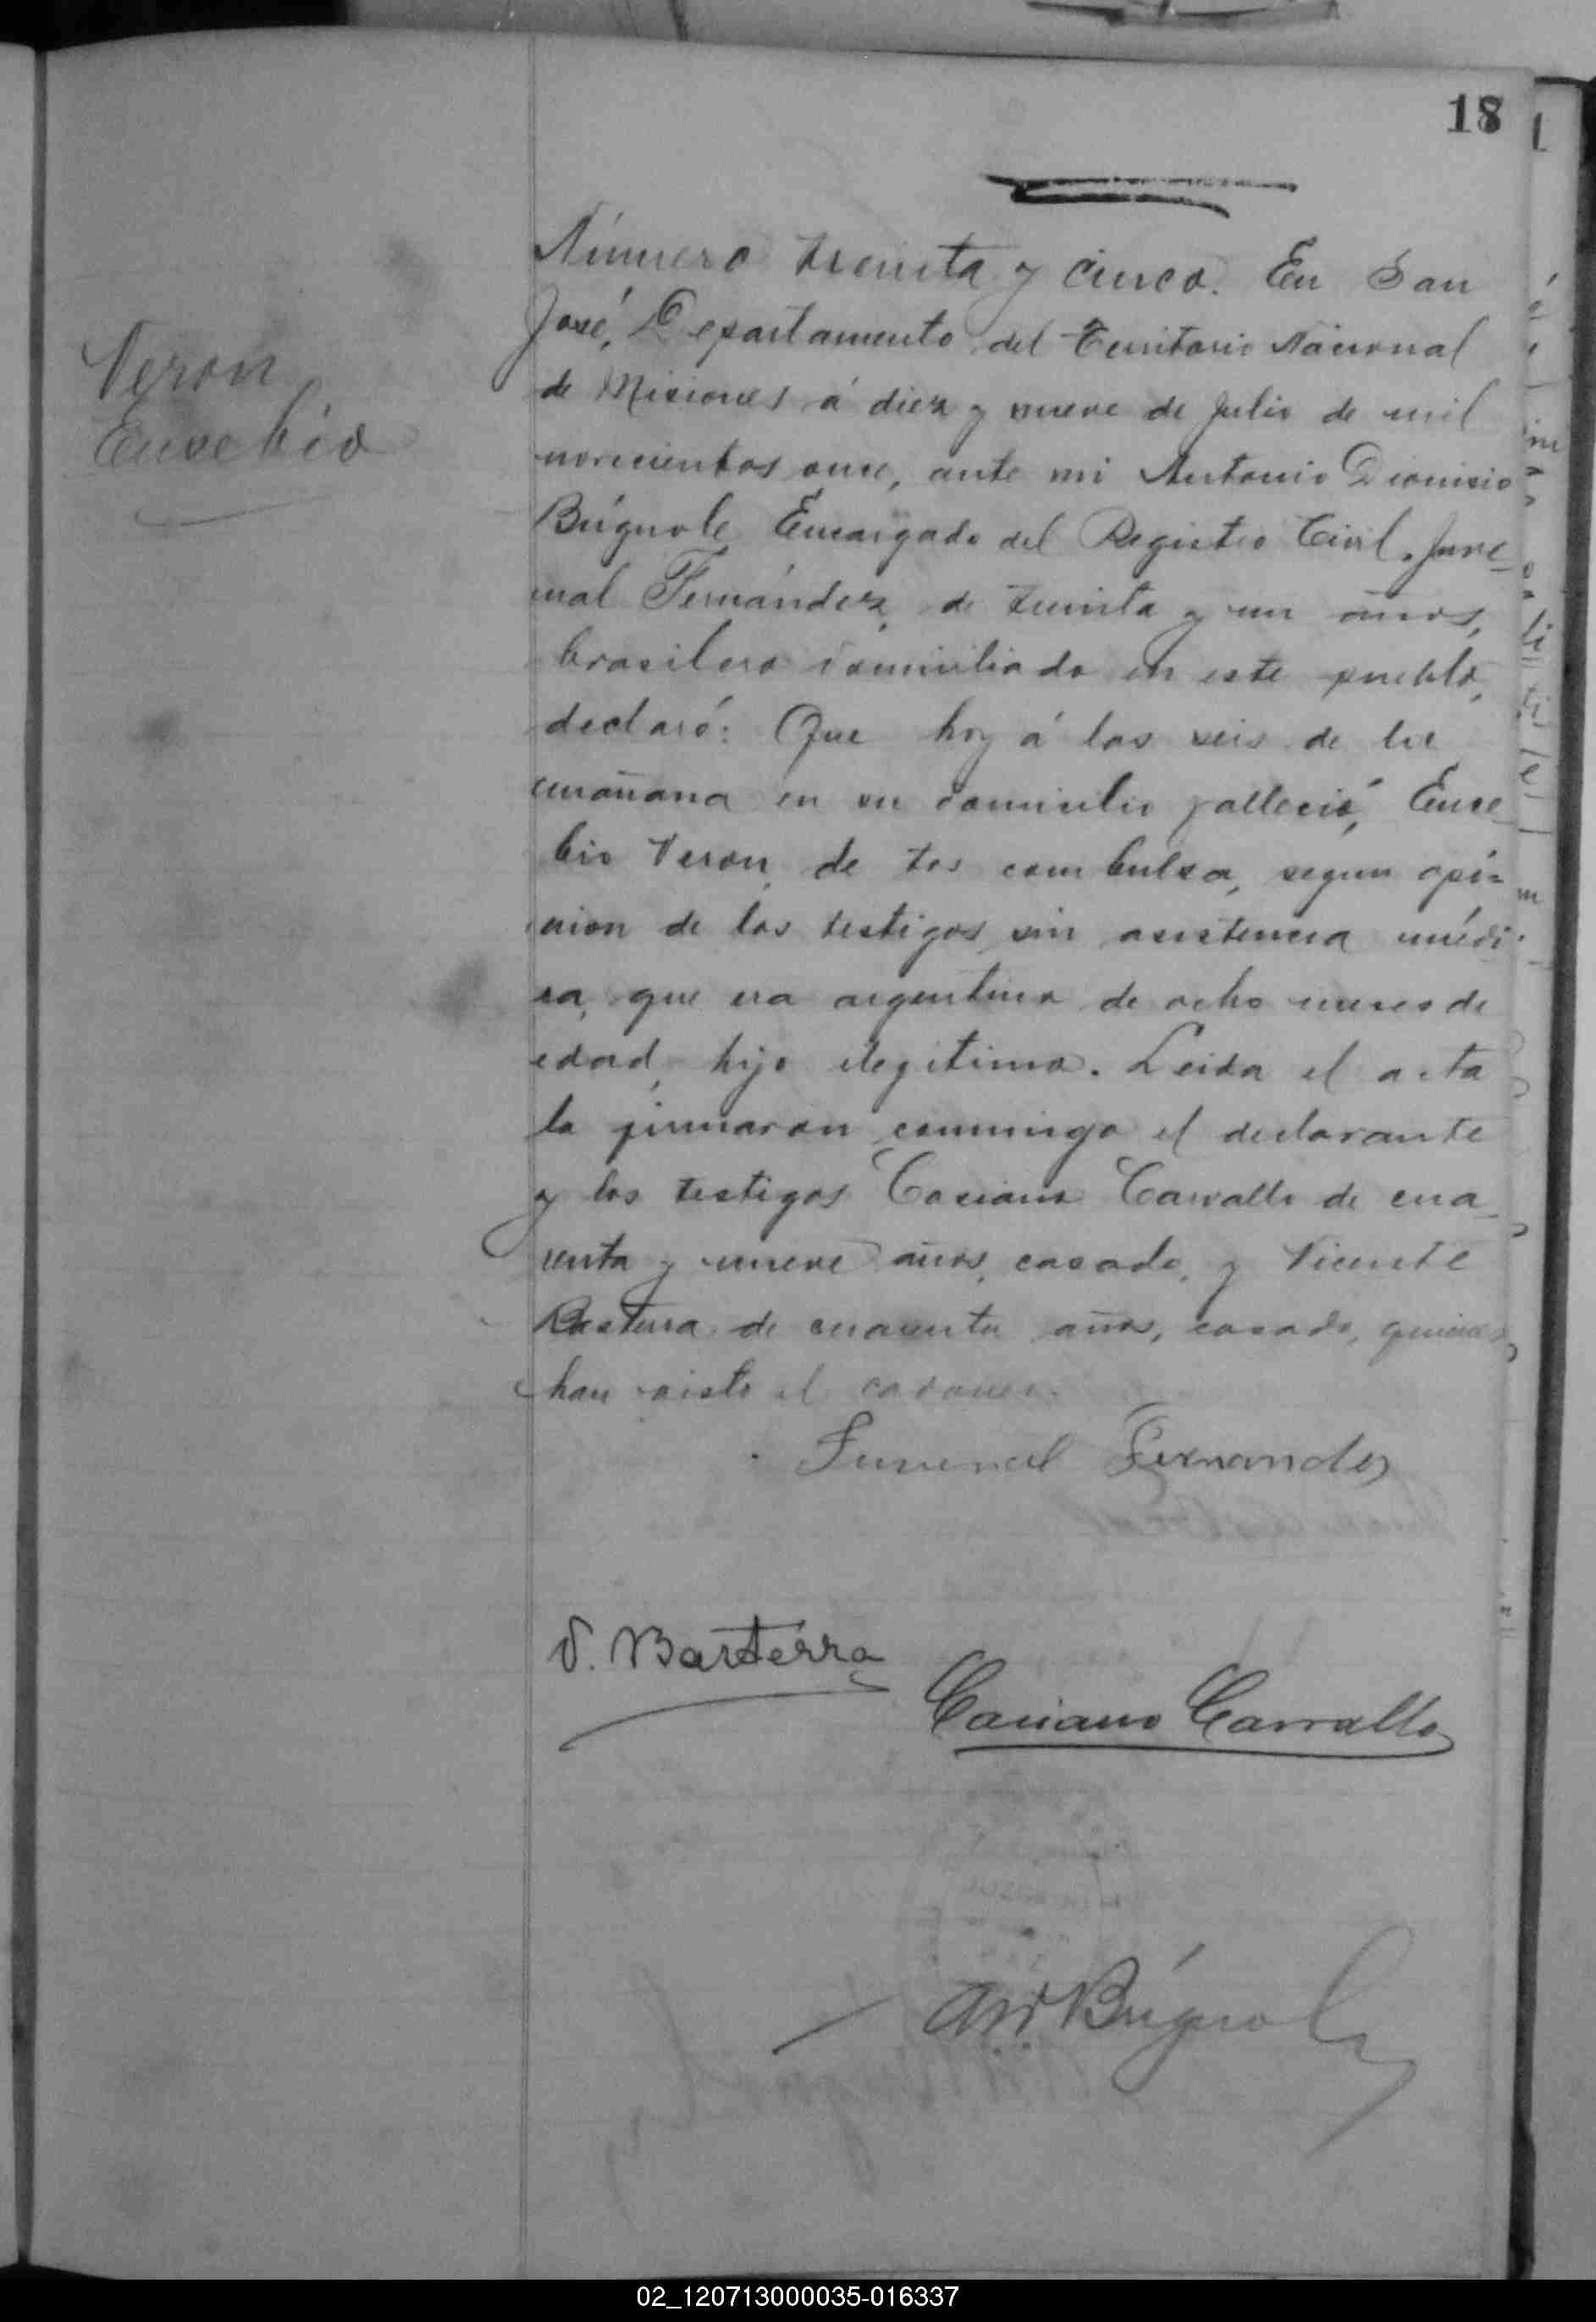 18
Número treinta y cinco. En San
José, Departamento del Territorio Nacional
de Misiones á diez y nueve de Julio de mil
novecientos once, ante mi Antonio Dionisio
Búgnole Encargado del Registro Civil. Juve-
nal Fernández, de treinta y un años,
brasilero domiciliado en este pueblo,
declaró: Que hoy á las seis de la
mañana en su domicilio falleció, Euse-
bio Veron, de tos combulsa, segun opi-
nion de los testigos, sin asistencia médi-
ca, que era argentino de ocho meses de
edad, hijo ilegitimo. Leida el acta
la firmaron conmigo el declarante
y los testigos Casiano Carvallo de cua-
renta y nueve años, casado, y Vicente
Basterra de cuarenta años, casado, quienes
han visto el cadaver.
Veron
Eusebio
Juvenal Fernandez
V. Basterra
Casiano Carvallo
Búgnole
02_120713000035-016337